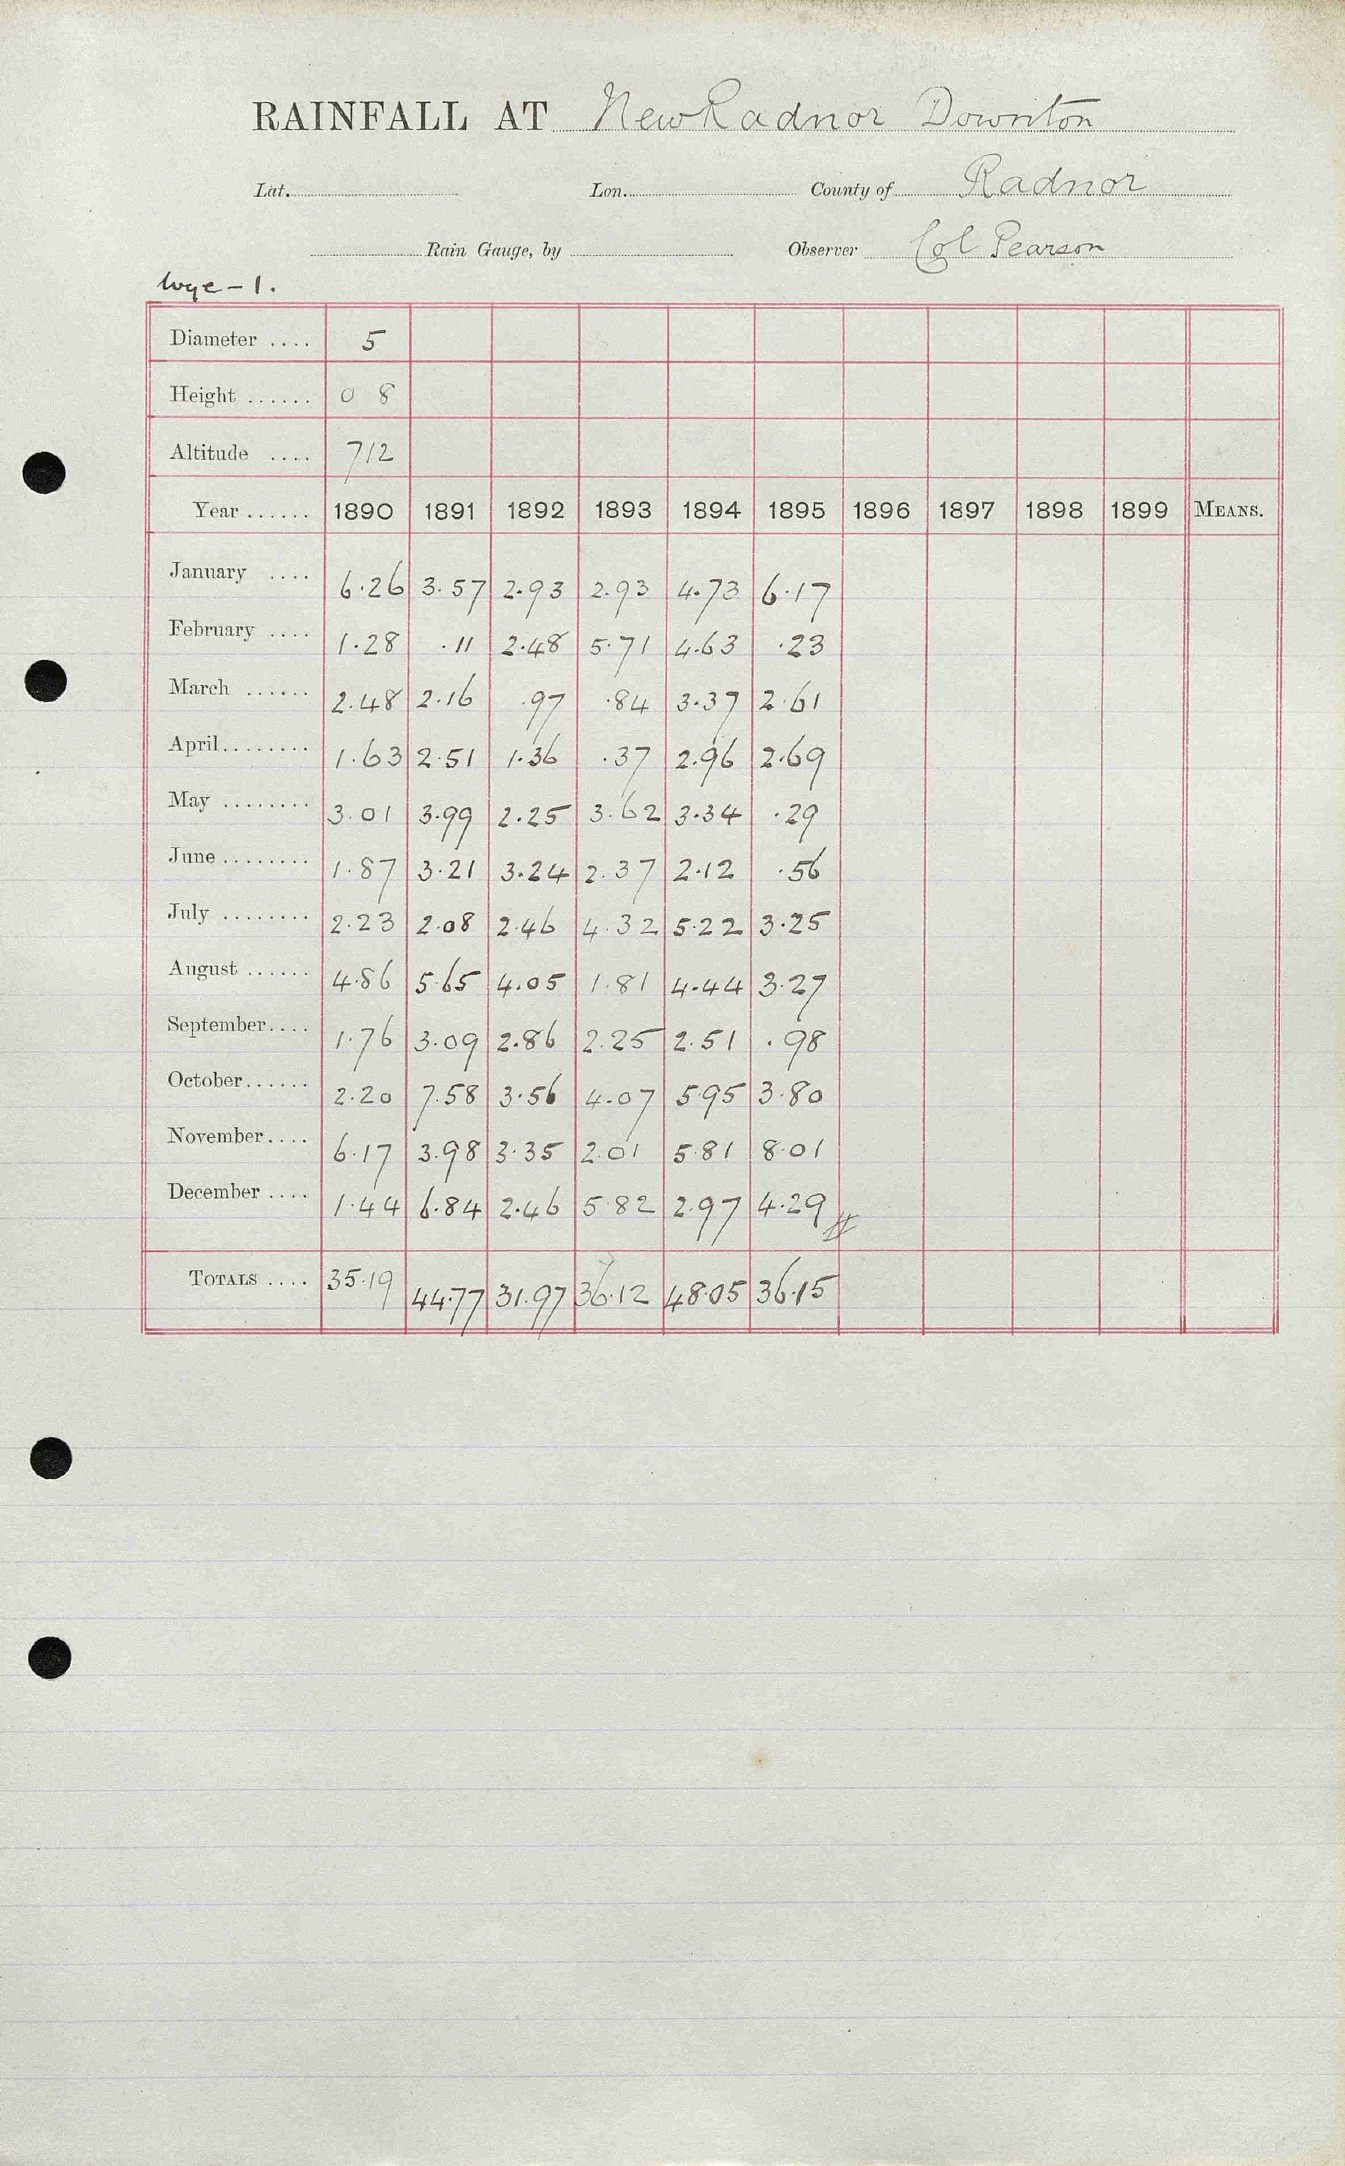 RAINFALL AT New Radnor Downton
Lat. Lon. County of Radnor
Rain Gauge, by Observer Col Pearson
Wye - 1.
Diameter .... 5
Height ...... 0 8
Altitude .... 712
Year ...... 1890 1891 1892 1893 1894 1895 1896 1897 1898 1899 MEANS.
January .... 6.26 3.57 2.93 2.93 4.73 6.17
February .... 1.28 .11 2.48 5.71 4.63 .23
March ...... 2.48 2.16 .97 .84 3.37 2.61
April ........ 1.63 2.51 1.36 .37 2.96 2.69
May ........ 3.01 3.99 2.25 3.62 3.34 .29
June ........ 1.87 3.21 3.24 2.37 2.12 .56
July ........ 2.23 2.08 2.46 4.32 5.22 3.25
August ...... 4.86 5.65 4.05 1.81 4.44 3.27
September .... 1.76 3.09 2.86 2.25 2.51 .98
October ...... 2.20 7.58 3.56 4.07 5.95 3.80
November .... 6.17 3.98 3.35 2.01 5.81 8.01
December .... 1.44 6.84 2.46 5.82 2.97 4.29
TOTALS .... 35.19 44.77 31.97 36.12 48.05 36.15